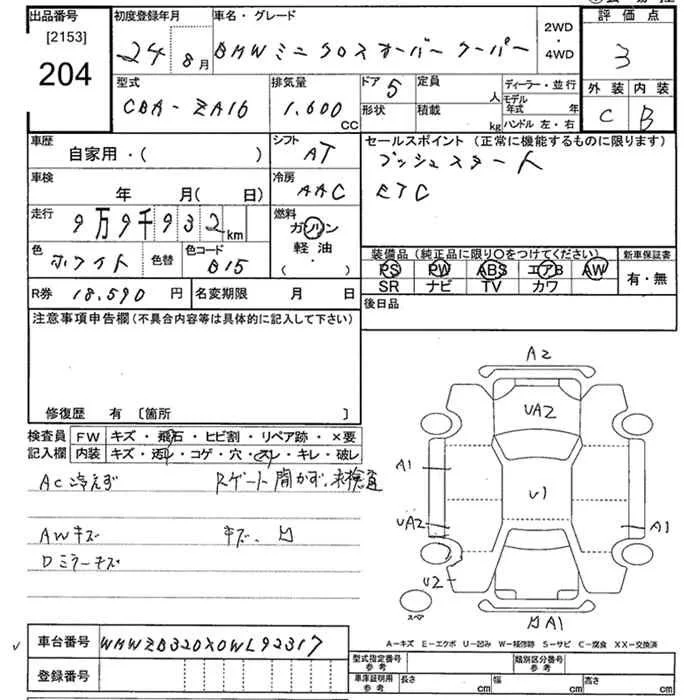 出品番号 初度登録年月 車名・グレード 2WD・4WD 評価点
[2153]
204
24 8月 BMWミニクロスオーバー クーパー 3
型式 排気量 ドア 5 定員 人 ディーラー・並行 外装 内装
CBA-ZA16 1.600 CC 形状 積載 kg モデル年式 年 C B
ハンドル 左・右
車歴 自家用・( ) シフト AT セールスポイント (正常に機能するものに限ります)
プッシュスタート
車検 年 月(日) 冷房 AAC ETC
走行 9万9千932km 燃料 ガソリン
軽油
( ・ )
色 ホワイト 色替 色コード B15
装備品 (純正品に限り○をつけてください) 新車保証書
PS PW ABS エアB AW 有・無
SR ナビ TV カワ
R券 18,590 円 名変期限 月 日 後日品
注意事項申告欄 (不具合内容等は具体的に記入して下さい)
修復歴 有 [箇所 ]
検査員記入欄 FW キズ・飛石・ヒビ割・リペア跡・×要
内装 キズ・汚レ・コゲ・穴・スレ・キレ・破レ
AC冷えず Rゲート開かず、未検査
AWキズ キズ、凹
Dミラーキズ
A2
UA2
A1
U1
UA2
A1
U2
スペア
A1
A-キズ E-エクボ U-凹み W-補修跡 S-サビ C-腐食 XX-交換済
車台番号 WMWZB320X0WL92317
登録番号
型式指定番号 参考 類別区分番号 参考
車庫証明用 参考 長さ cm 幅 cm 高さ cm